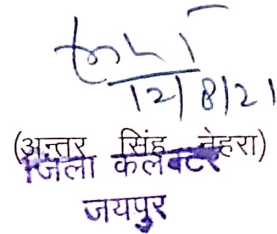 12/8/21
(अन्तर सिंह नेहरा)
जिला कलक्टर
जयपुर